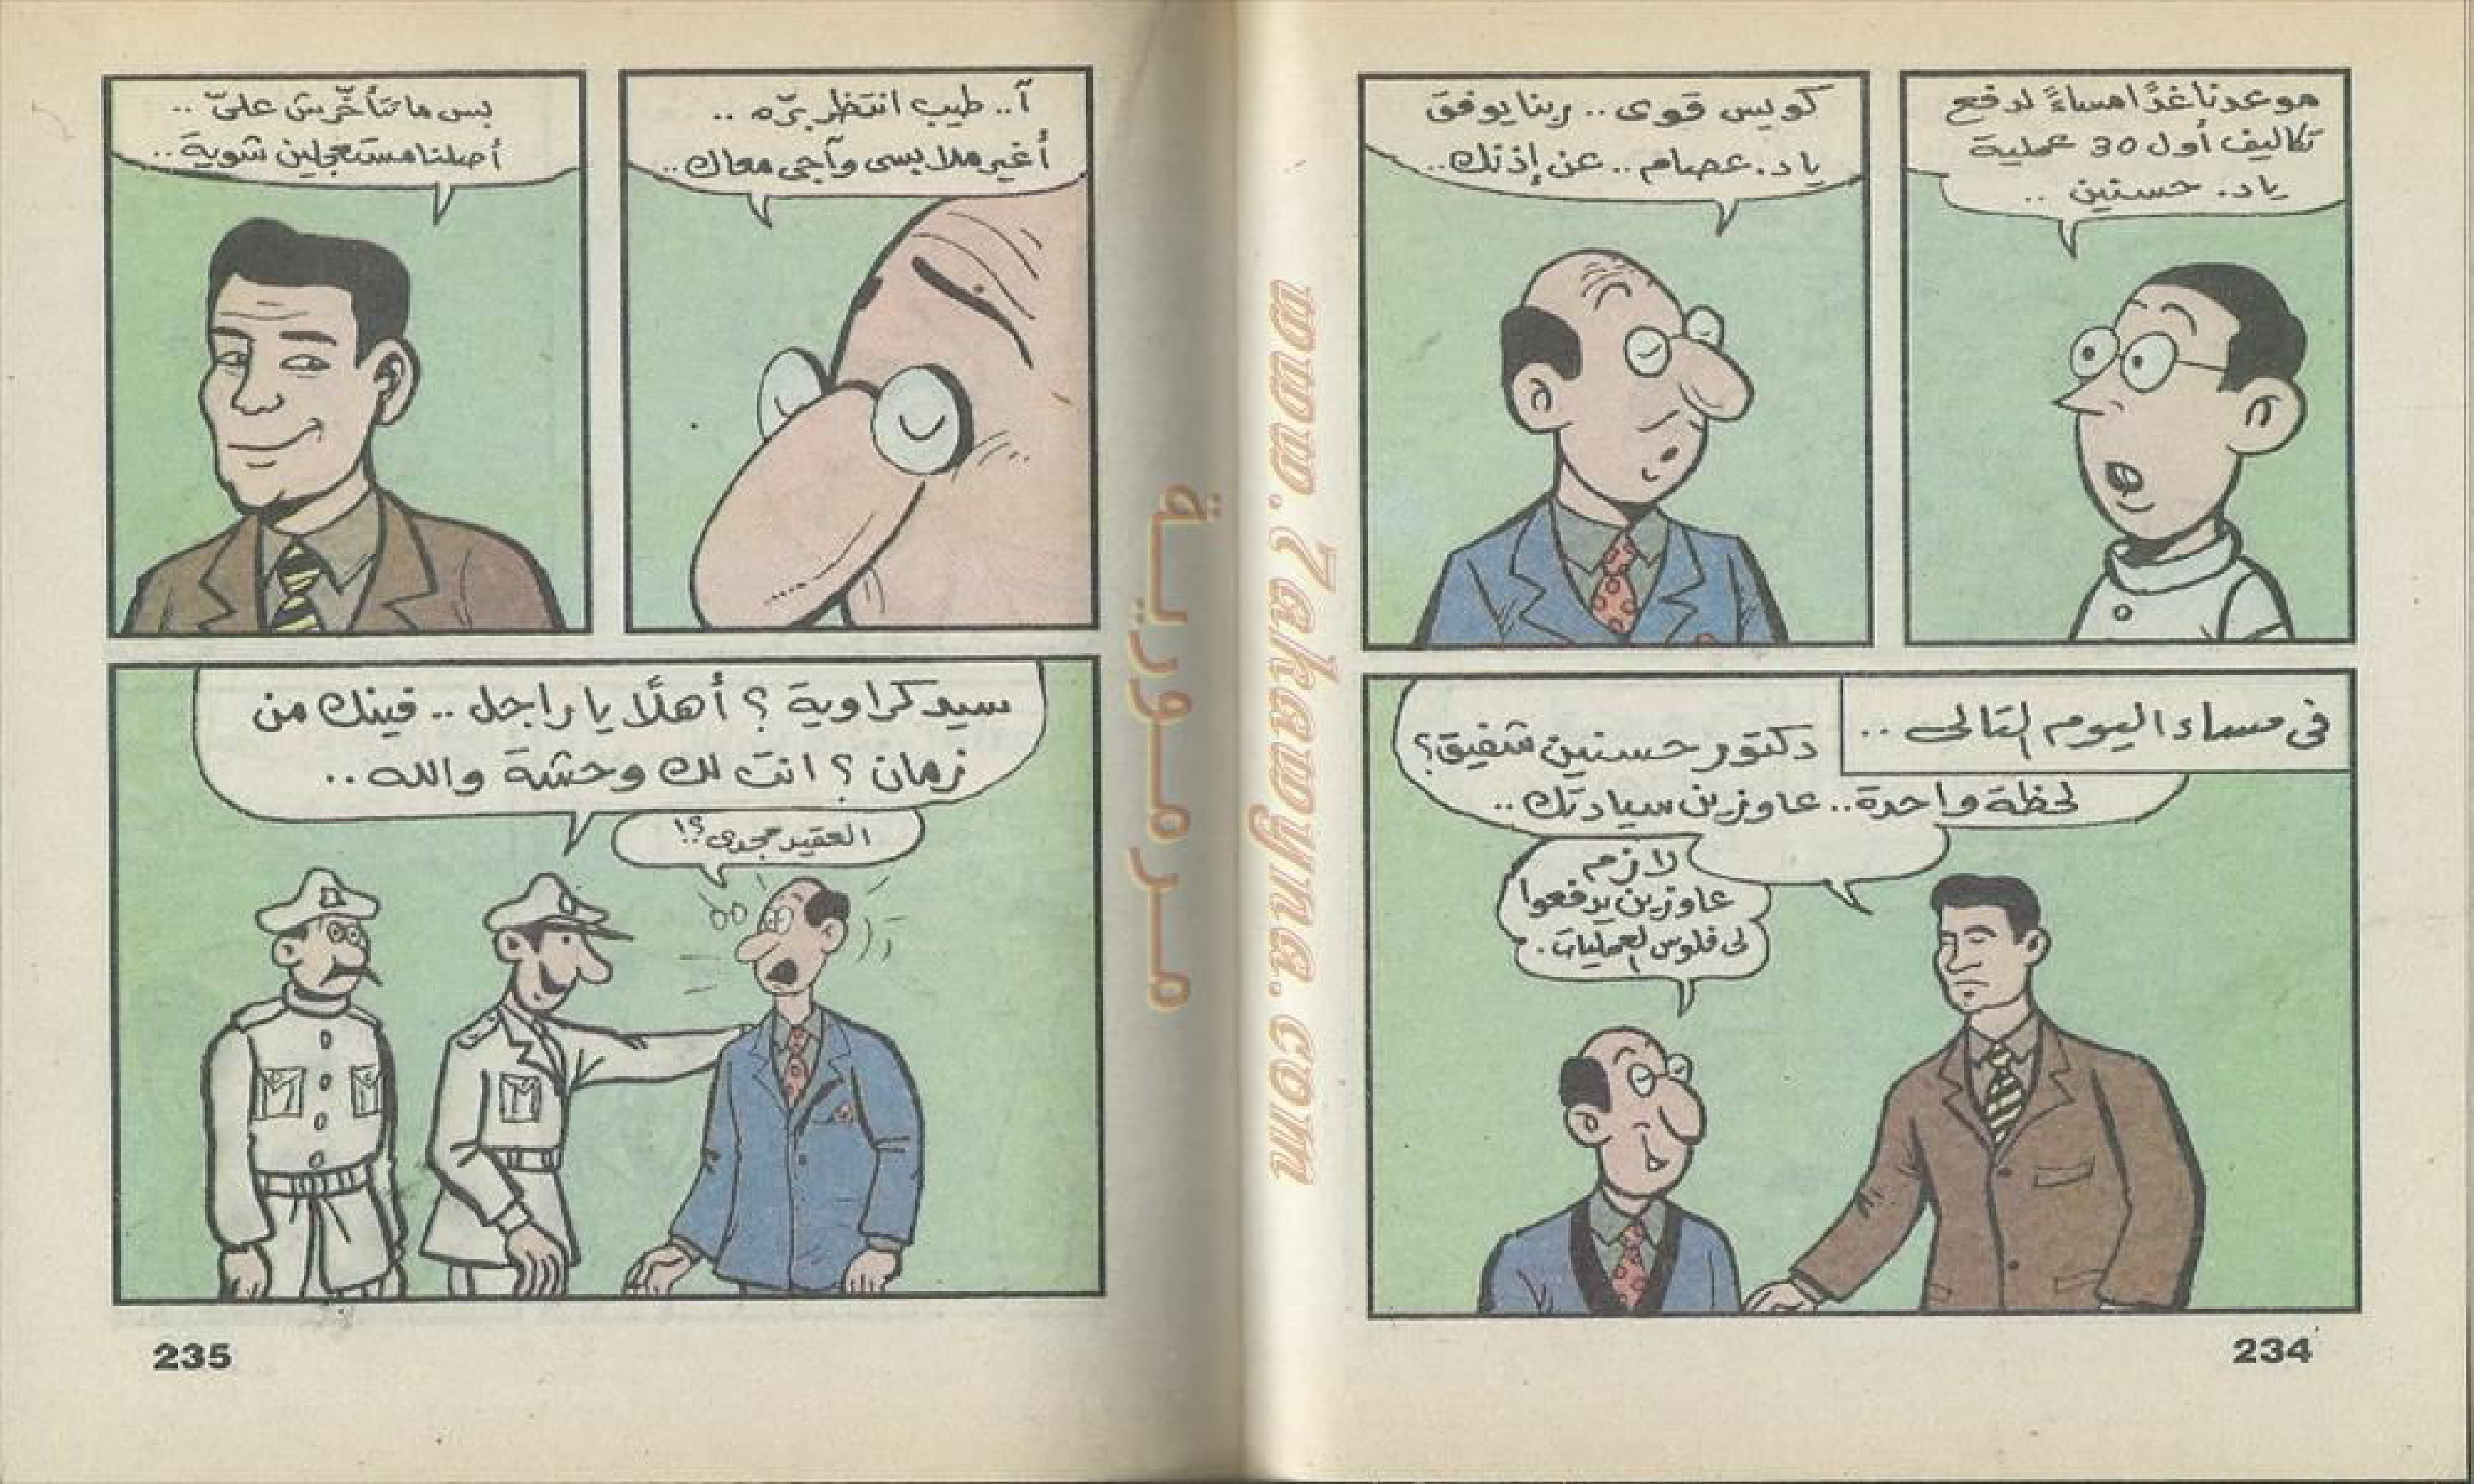 موعدنا غدًا مساءً لدفع
تكاليف أول 30 عملية
يا د. حسنين ..
كويس قوى .. ربنا يوفق
يا د. عصام .. عن إذنك ..
فى مساء اليوم التالى ..
دكتور حسنين شفيق؟
لحظة واحدة.. عاوزين سيادتك ..
لازم
عاوزين يدفعوا
لى فلوس العمليات .
234
آ.. طيب انتظر برّه ..
أغير ملابسى وآجى معاك ..
بس ما تتأخّرش علىّ ..
أصلنا مستعجلين شوية ..
سيد كراوية ؟ أهلًا يا راجل .. فينك من
زمان ؟ انت لك وحشة والله ..
العقيد مجدى ؟!
235
مرمورية
www.7akawyna.com